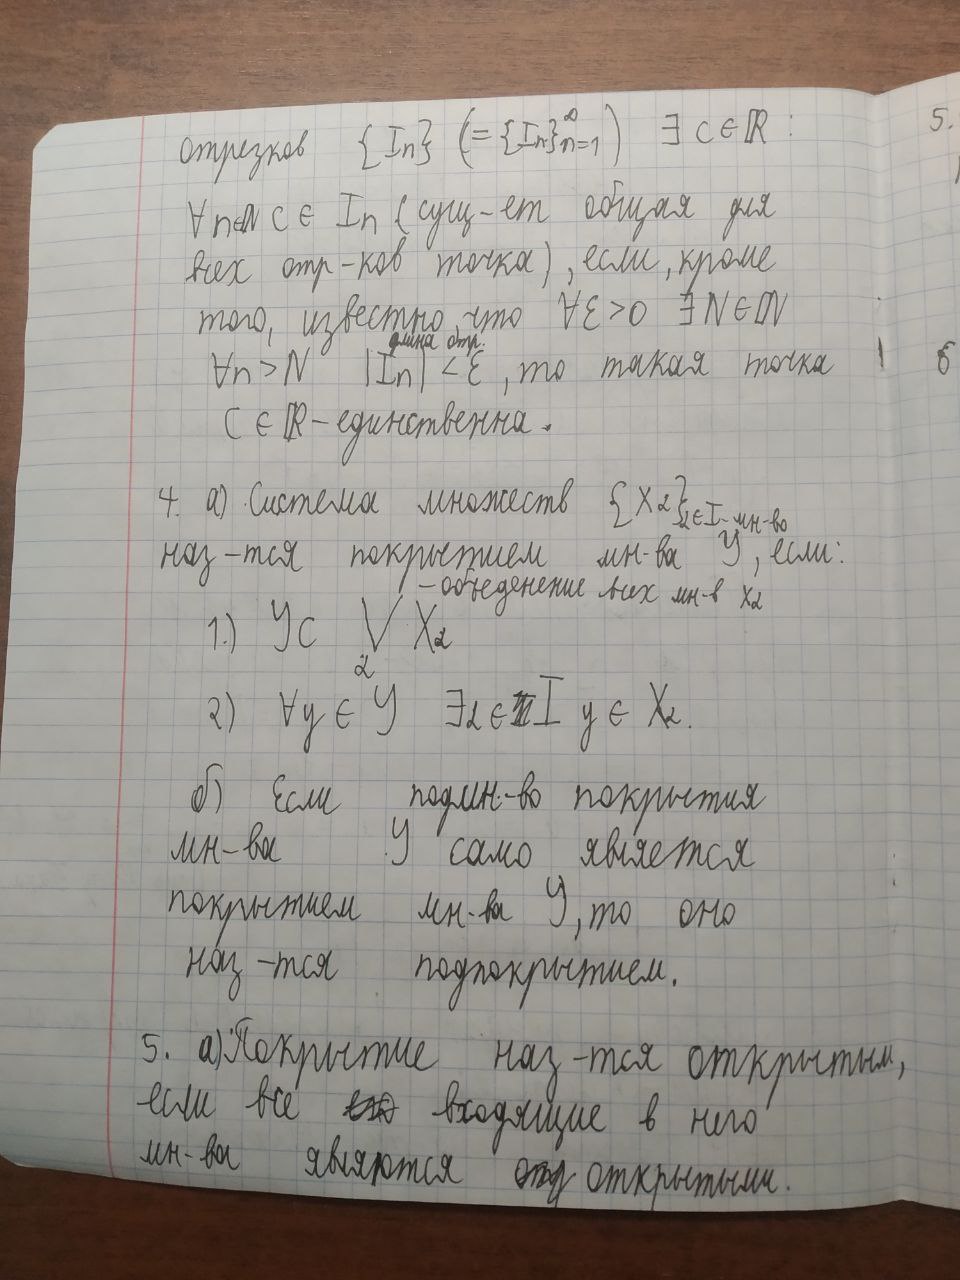 отрезков {In} (= {In}∞n=1) ∃ C ∈ ℝ :
∀n∈ℕ C ∈ In (сущ-ет общая для
всех отр-ков точка), если, кроме
того, известно, что ∀ε>0 ∃N∈ℕ
длина отр.
∀n>N |In| < ε, то такая точка
C ∈ ℝ – единственна.
4. а) Система множеств {X₂}₂∈I-мн-во
наз-тся покрытием мн-ва Y, если:
– объеденение всех мн-в X₂
1.) Y⊂ ⋁₂ X₂
2) ∀y ∈ Y ∃₂ ∈ I y ∈ X₂.
б) Если подмн-во покрытия
мн-ва Y само является
покрытием мн-ва Y, то оно
наз-тся подпокрытием.
5. а) Покрытие наз-тся открытым,
если все входящие в него
мн-ва являются открытыми.
5.
6